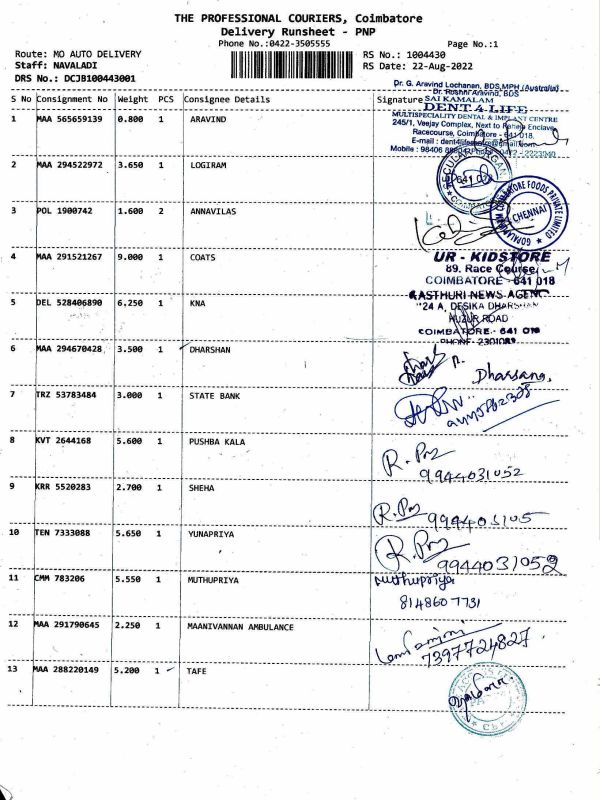 THE PROFESSIONAL COURIERS, Coimbatore
Delivery Runsheet - PNP
Phone No.:0422-3505555
Page No.:1
Route: MO AUTO DELIVERY
RS No.: 1004430
Staff: NAVALADI
RS Date: 22-Aug-2022
DRS No.: DCJB100443001
Dr. G. Aravind Lochanan, BDS,MPH (Australia)
Dr. Roshni Aravind, BDS
S No Consignment No Weight PCS Consignee Details Signature
SAI KAMALAM
DENT 4 LIFE
MULTISPECIALITY DENTAL & IMPLANT CENTRE
245/1, Veejay Complex, Next to Enclave
Racecourse, Coimbatore - 641 018.
1 MAA 565659139 0.800 1 ARAVIND
2 MAA 294522972 3.650 1 LOGIRAM
3 POL 1900742 1.600 2 ANNAVILAS
CHENNAI
4 MAA 291521267 9.000 1 COATS
UR - KIDSTORE
89. Race Course,
COIMBATORE - 641 018
5 DEL 528406890 6.250 1 KNA
KASTHURI NEWS AGENCY
"24 A, DESIKA
HUZUR ROAD
COIMBATORE - 641 018
6 MAA 294670428 3.500 1 DHARSHAN
7 TRZ 53783484 3.000 1 STATE BANK
8 KVT 2644168 5.600 1 PUSHBA KALA
9944031052
9 KRR 5520283 2.700 1 SHEHA
10 TEN 7333088 5.650 1 YUNAPRIYA
9944031052
11 CMM 783206 5.550 1 MUTHUPRIYA
Muthupriya
8148607731
12 MAA 291790645 2.250 1 MAANIVANNAN AMBULANCE
7397724827
13 MAA 288220149 5.200 1 TAFE